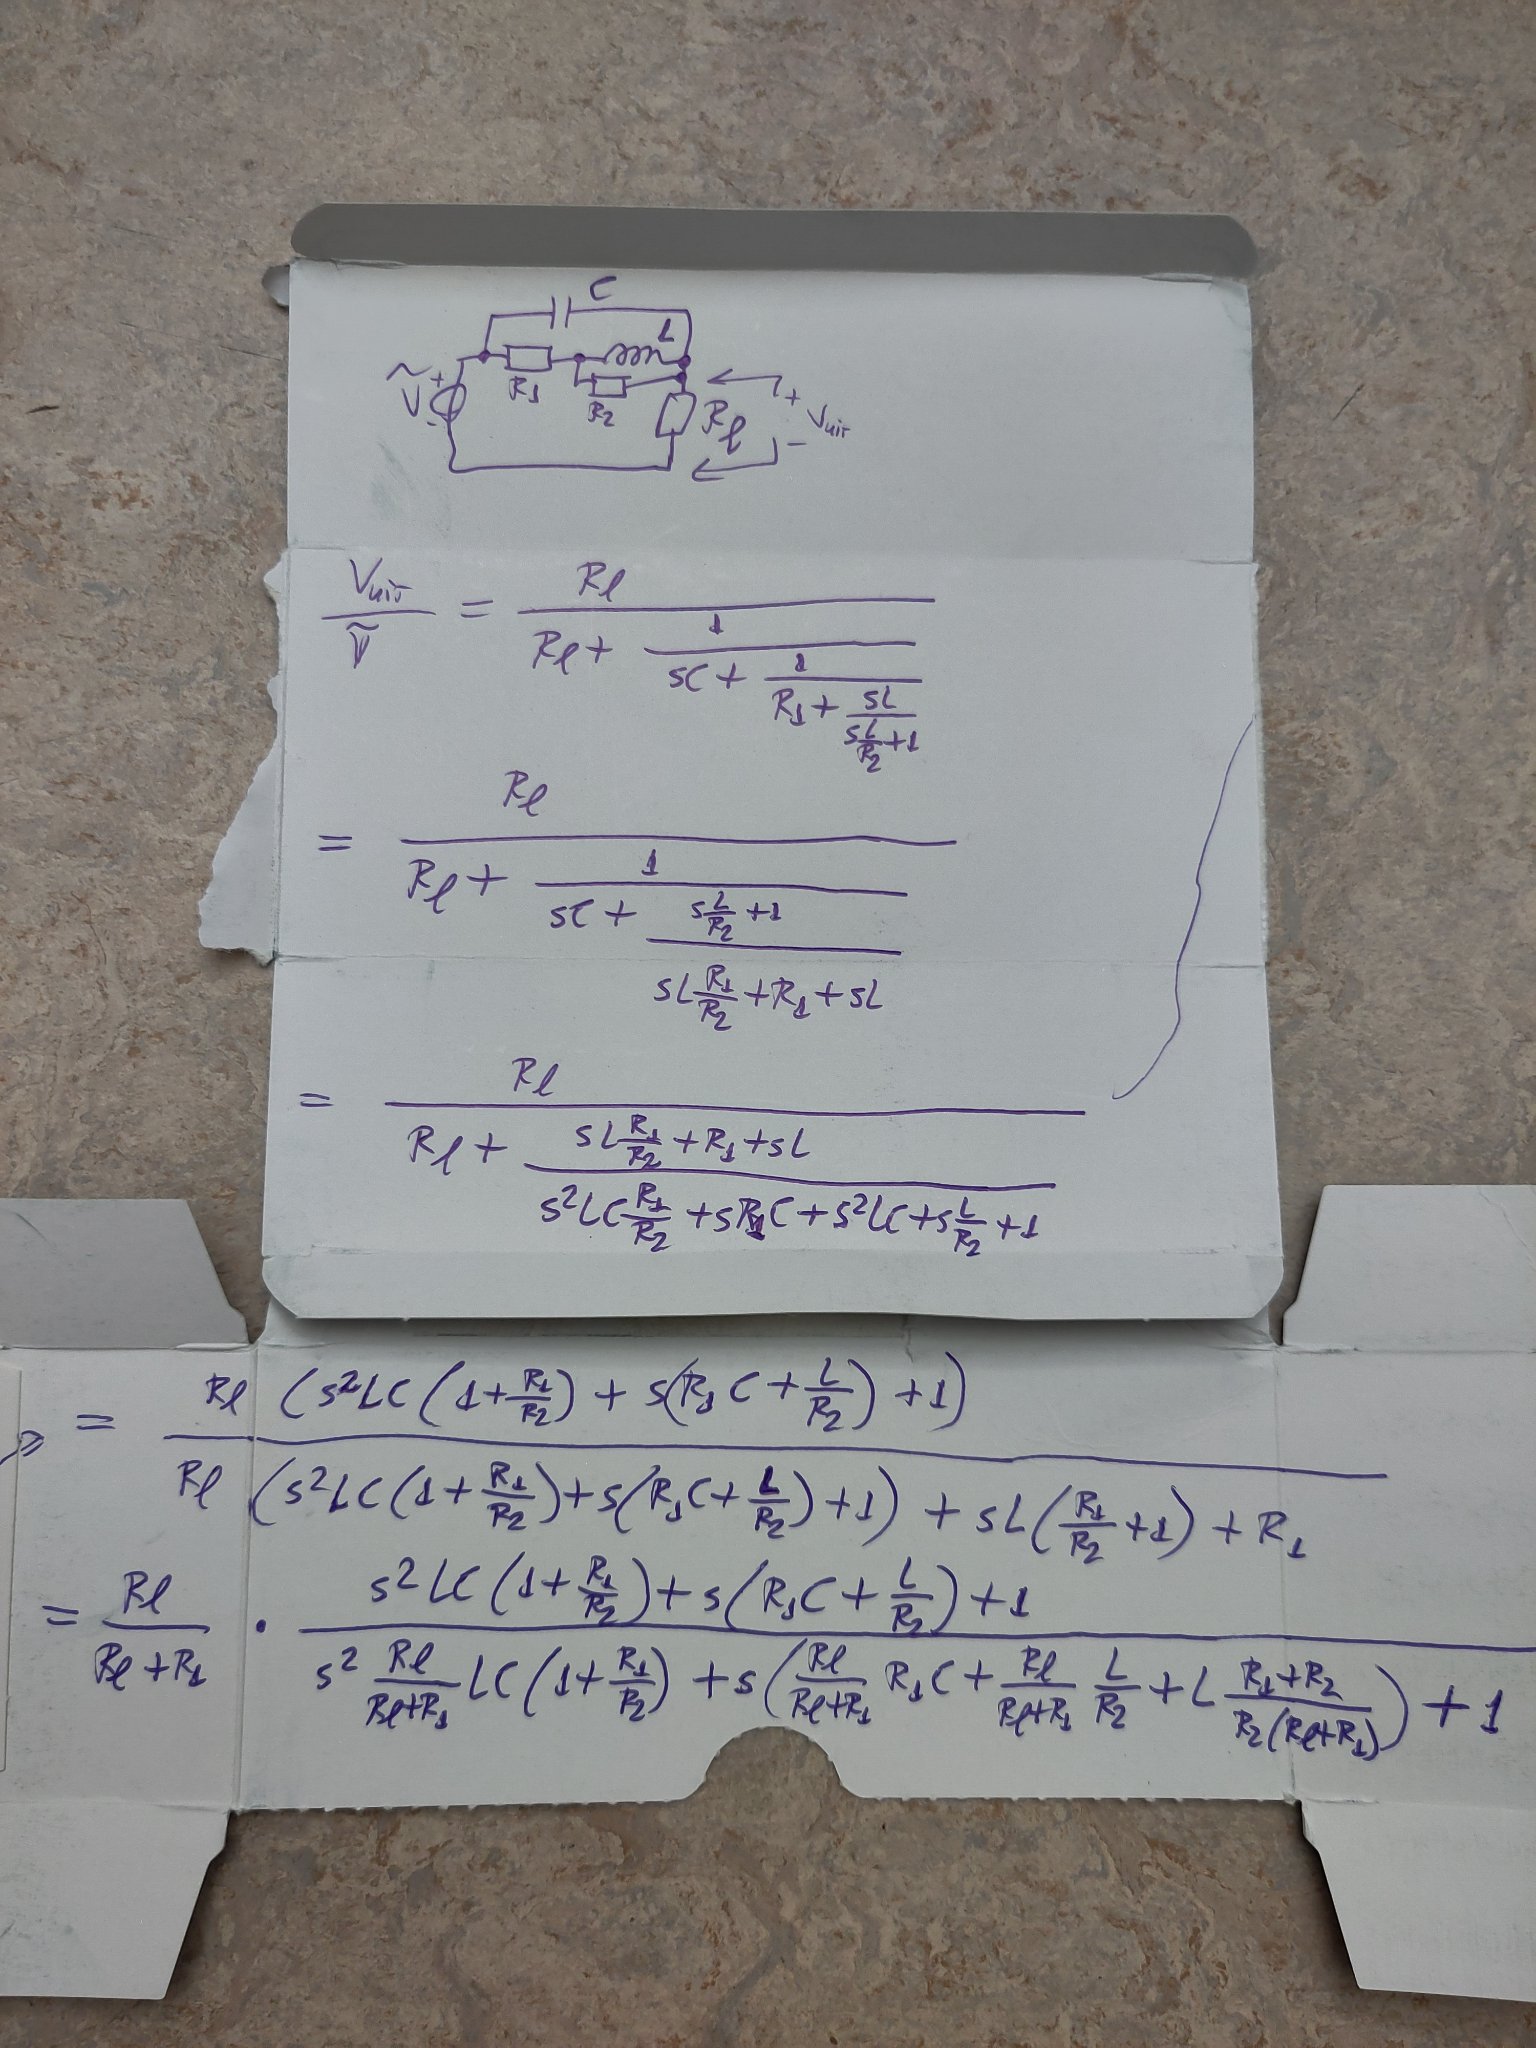 C
L
Ṽ + - R₁ R₂ Rℓ + Vuit -
Vuit/Ṽ = Rℓ / (Rℓ + 1/(sC + 1/(R₁ + sL/(s L/R₂ + 1))))
= Rℓ / (Rℓ + 1/(sC + (s L/R₂ + 1)/(sL R₁/R₂ + R₁ + sL)))
= Rℓ / (Rℓ + (sL R₁/R₂ + R₁ + sL)/(s²LC R₁/R₂ + sR₁C + s²LC + s L/R₂ + 1))
= Rℓ (s²LC(1 + R₁/R₂) + s(R₁C + L/R₂) + 1) / (Rℓ (s²LC(1 + R₁/R₂) + s(R₁C + L/R₂) + 1) + sL(R₁/R₂ + 1) + R₁)
= Rℓ/(Rℓ + R₁) · (s²LC(1 + R₁/R₂) + s(R₁C + L/R₂) + 1) / (s² Rℓ/(Rℓ+R₁) LC(1 + R₁/R₂) + s(Rℓ/(Rℓ+R₁) R₁C + Rℓ/(Rℓ+R₁) L/R₂ + L (R₁+R₂)/(R₂(Rℓ+R₁))) + 1)